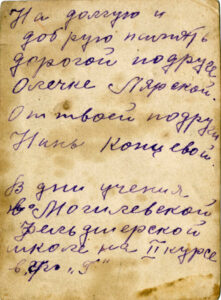 На долгую и
добрую память
дорогой подруге
Олечке Лярской.
От твоей подруги
Нины Концевой.
В дни учения
в Могилевской
Фельдшерской
школе на II курсе
в гр. "Г"